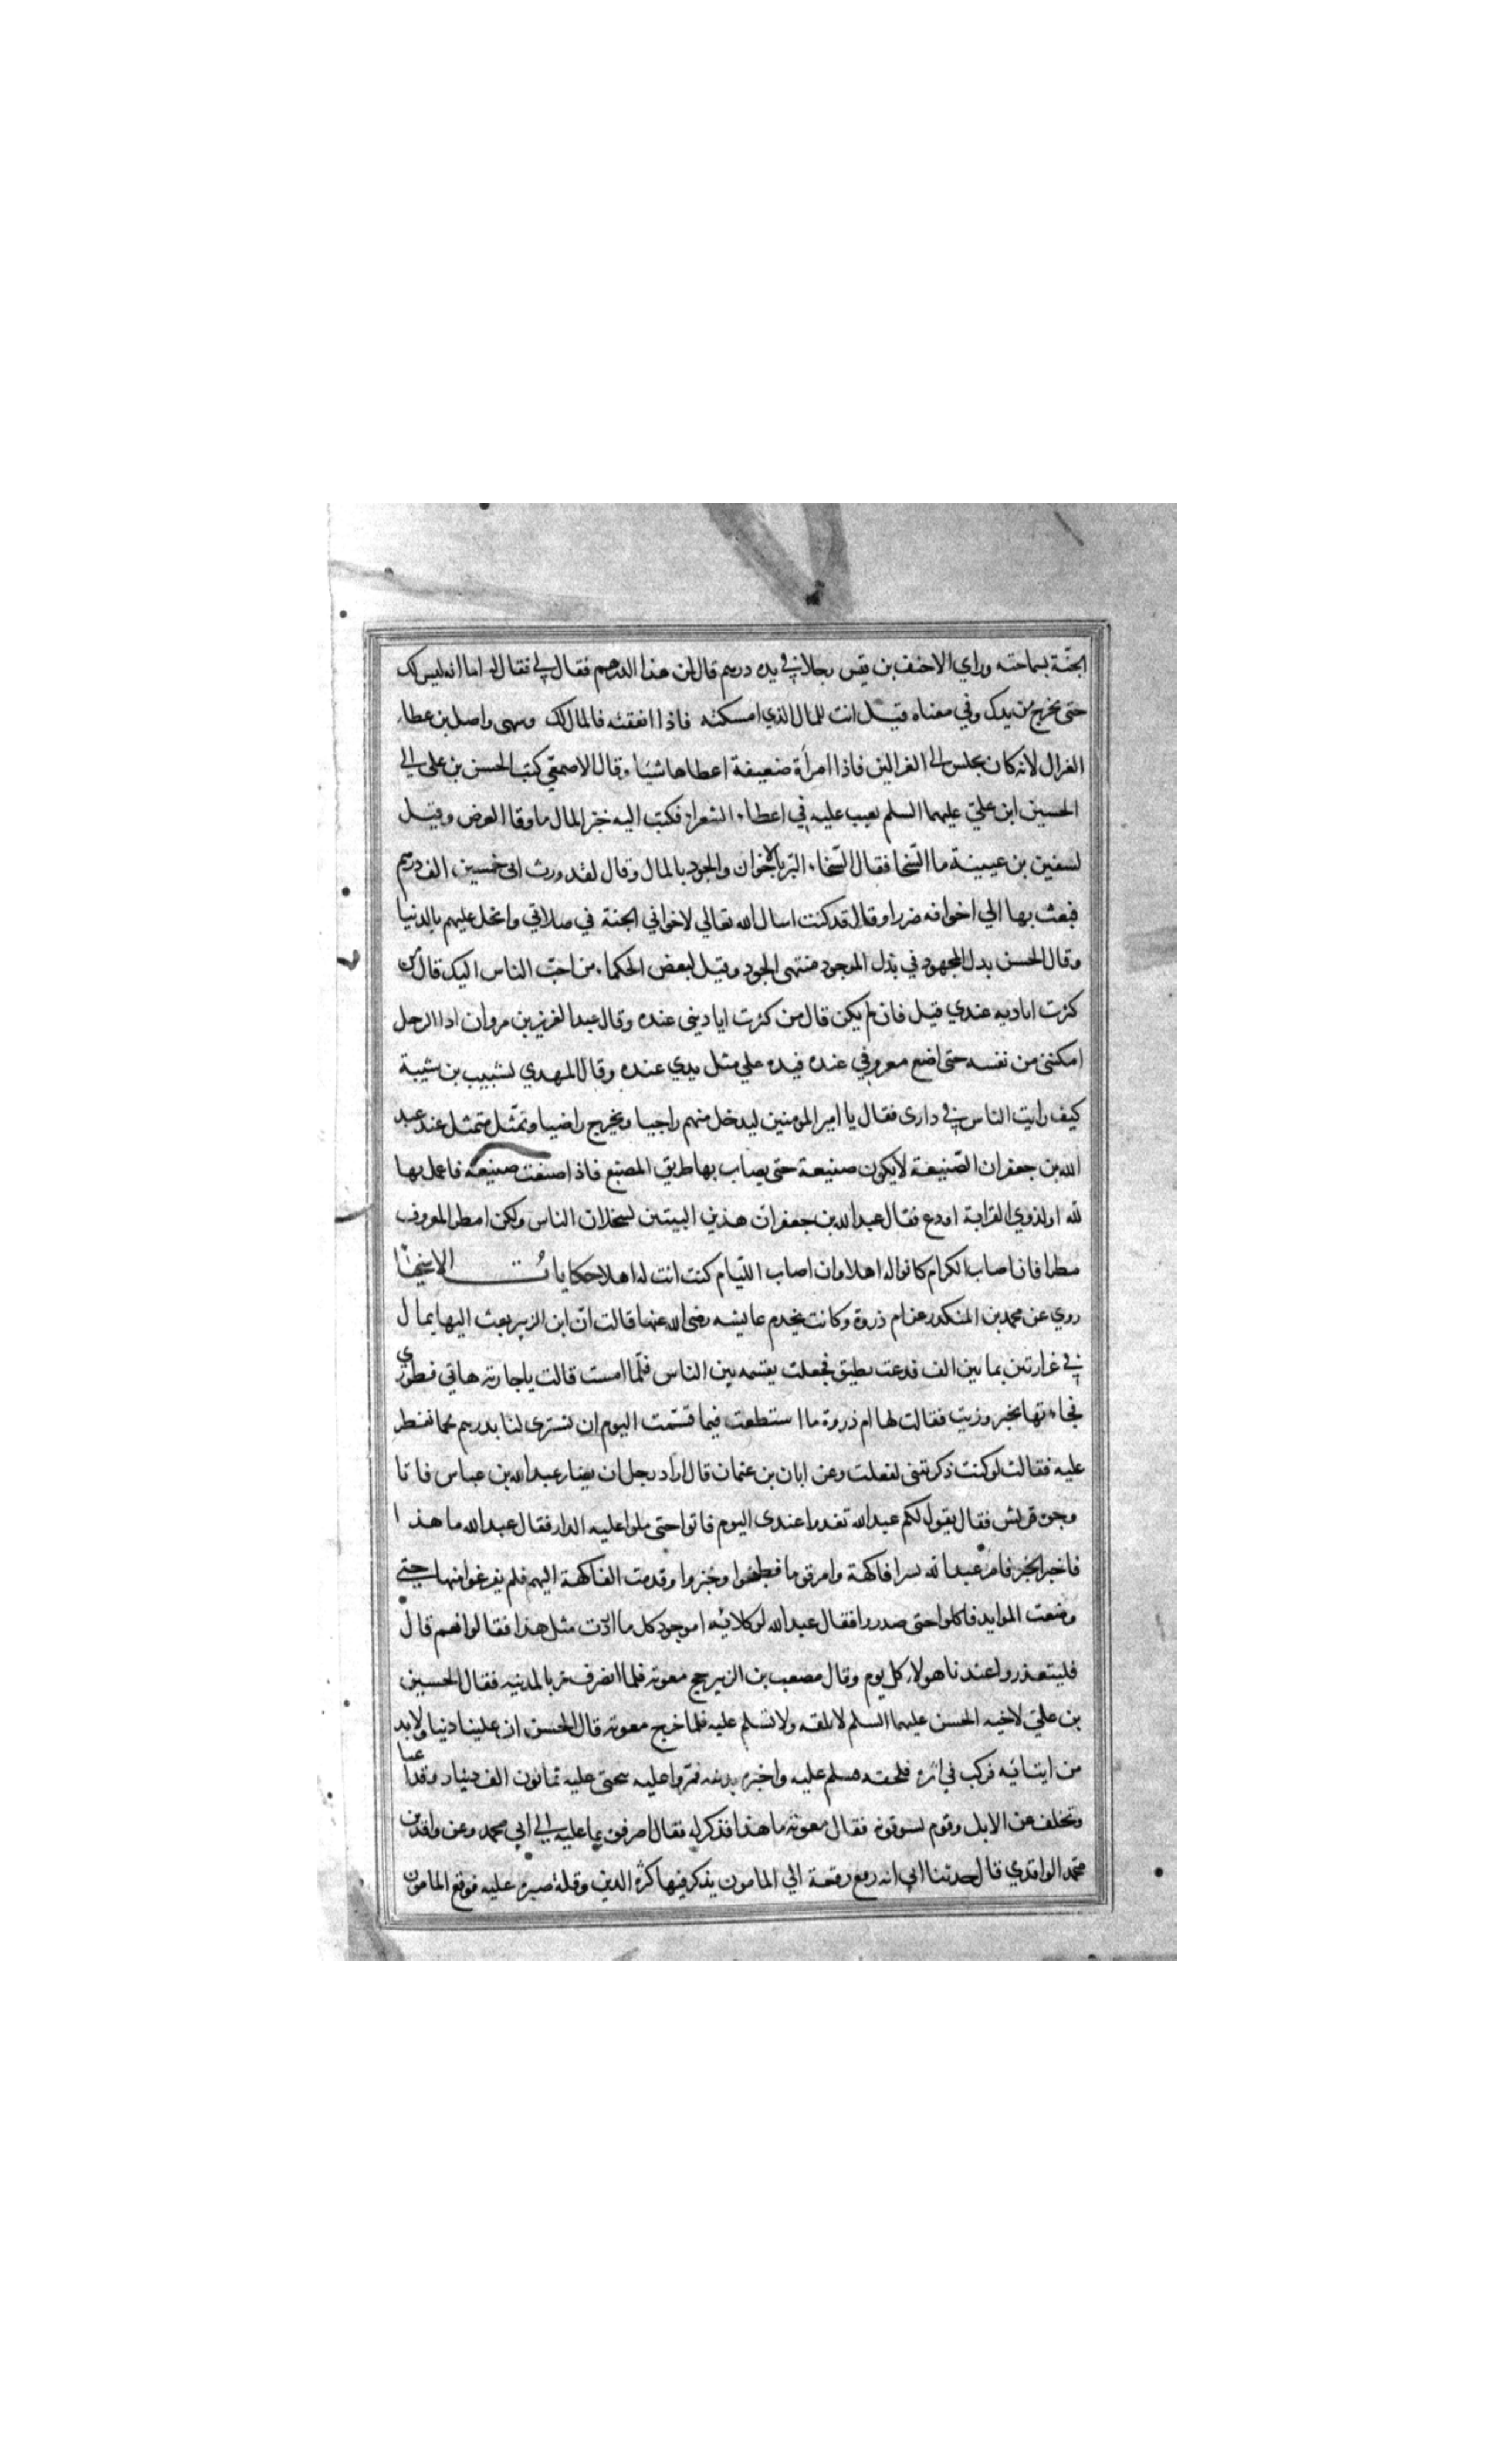 الجنّة بسماحته وراي الاحنف بن قيس رجلا في يده درهم قال لمن هذا الدرهم فقال لي فقال له اما انه ليس لك
حتى يخرج من يدك وفي معناه قيل انت للمال الذي امسكته فاذا انفقته فالمال لك وسمى واصل بن عطاء
الغزال لانه كان يجلس الى الغزالين فاذا امرأة ضعيفة اعطاها شيئا وقال الاصمعي كتب الحسن بن علي الي
الحسين ابن علي عليهما السلم يعيب عليه في اعطاء الشعراء فكتب اليه خير المال ما وقا العرض وقيل
لسفين بن عيينة ما السّخا فقال السّخاء البرّ بالاخوان والجود بالمال وقال لقد ورث ابى خمسين الف درهم
فبعث بها الي اخوانه صررا وقال قد كنت اسال الله تعالي لاخواني الجنة في صلاتي وابخل عليهم بالدنيا
وقال الحسن بدل المجهود في بذل الموجود منتهى الجود وقيل لبعض الحكماء من احبّ الناس اليك قال من
كثرت اياديه عندي قيل فان لم يكن قال من كثرت ايادينى عنده وقال عبد العزيز بن مروان اذا الرجل
امكننى من نفسه حتى اضع معروفي عنده فيده علي مثل يدي عنده وقال المهدي لشبيب بن شيبة
كيف رايت الناس في دارى فقال يا امير المومنين ليدخل منهم راجيا ويخرج راضيا وتمثّل متمثل عند عبد
الله بن جعفر ان الصّنيعة لا يكون صنيعة حتى يصاب بها طريق المصنع فاذا صنعت صنيعة فاعمل بها
لله او لذوي القرابة او دع فقال عبد الله بن جعفر ان هذين البيتين لبخلان الناس ولكن امطر المعروف
مطرا فان اصاب الكرام كانوا له اهلا وان اصاب اللئام كنت انت له اهلا حكايات الاسخيا
روي عن محمد بن المنكدر عن ام ذروة وكانت يخدم عايشه رضى الله عنها قالت انّ ابن الزبير بعث اليها بمال
في غرارتين بمانين الف فدعت بطبق فجعلت يقسمه بين الناس فلمّا امست قالت يا جارية هاتي فطوري
فجاءتها بخبز وزيت فقالت لها ام ذروة ما استطعت فيما قسمت اليوم ان تسترى لنا بدرهم لحما نفطر
عليه فقالت لو كنت ذكرتنى لفعلت وعن ابان بن عثمان قال اراد رجل ان يضار عبد الله بن عباس فاتا
وجوه قريش فقال يقول لكم عبد الله تغدوا عندى اليوم فاتوا حتى ملوا عليه الدار فقال عبد الله ما هذا
فاخبر الخبر فامر عبد الله بسرا فاكهة وامر قوما فطبخوا وخبزوا وقدمت الفاكهة اليهم فلم يفرغوا منها حتى
وضعت الموايد فاكلوا حتى صدروا فقال عبد الله لوكلائه اموجود كل ما اردت مثل هذا فقالوا نعم قال
فليتعذروا عندنا هولاء كل يوم وقال مصعب بن الزبير حج معوية فلما انصرف مرّ بالمدينه فقال الحسين
بن علي لاخيه الحسن عليهما السلم لا بلقه ولا تسلم عليه فلما خرج معوية قال الحسن ان علينا دينا ولا بد
من ايتيانيه فركب في اثره فلحقه فسلم عليه واخبره بدينه فمروا عليه ببختى عليه ثمانون الف دينار وقد اعيا
وتخلف عن الابل وقوم يسوقونه فقال معوية ما هذا فذكر له فقال اصرفوه بما عليه الي ابي محمد وعن واقد بن
محمد الواقدي قال حدثنا ابي انه رفع رقعة الي المامون يذكر فيها كثرة الدين وقلة صبره عليه فوقع المامون